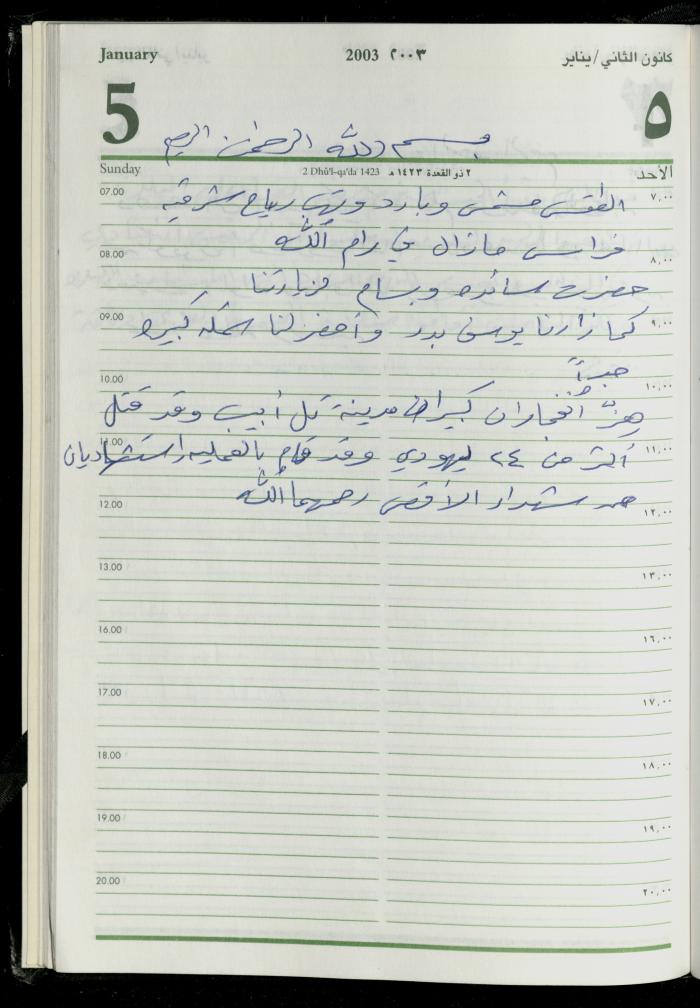 January 2003 ٢٠٠٣ كانون الثاني/يناير
5 ٥
بسم الله الرحمن الرحيم
Sunday 2 Dhū'l-qa'da 1423 ٢ ذو القعدة ١٤٢٣ هـ الأحد
07.00 الطقس مشمس وبارد وتهب رياح شرقية ٧,٠٠
فراس مازال في رام الله
08.00 ٨,٠٠
حضرت سائده وبسام لزيارتنا
09.00 كما زارنا يوسف بدر وأحضر لنا سمكه كبيره ٩,٠٠
جداً
10.00 ١٠,٠٠
هزّ انفجاران كبيران مدينة تل أبيب وقد قتل
11.00 أكثر من ٢٤ يهودي وقد قام بالعمليه استشهاديان ١١,٠٠
من شهداء الأقصى رحمهما الله
12.00 ١٢,٠٠
13.00 ١٣,٠٠
16.00 ١٦,٠٠
17.00 ١٧,٠٠
18.00 ١٨,٠٠
19.00 ١٩,٠٠
20.00 ٢٠,٠٠